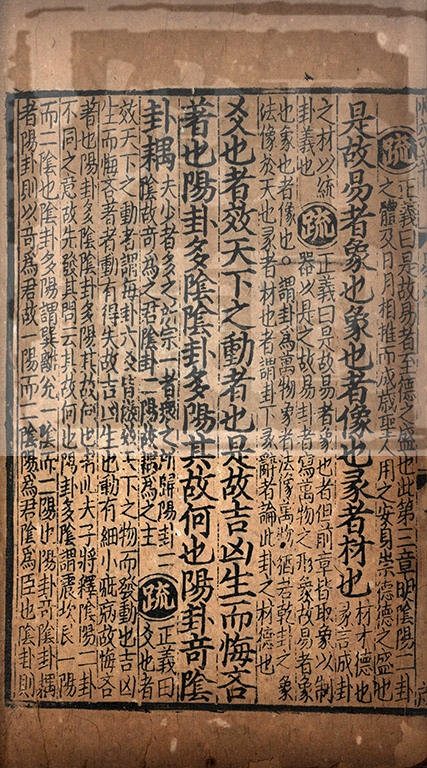 疏正義曰是故易者至德之盛也此第三章明陰陽二卦
之體及日月相推而成歲聖人用之安身崇德德之盛也
是故易者象也象也者像也彖者材也
材才德也
彖言成卦
之材以統
卦義也
疏正義曰是故易者象也者但前章皆取象以制
器以是之故易卦者寫萬物之形象故易者象
也象也者像也。謂卦爲萬物象者法像萬物猶若乾卦之象
法像於天也彖者材也者謂卦下彖辭者論此卦之材德也
爻也者效天下之動者也是故吉凶生而悔吝
著也陽卦多陰陰卦多陽其故何也陽卦奇陰
卦耦
夫少者多之所宗一者衆之所歸陽卦二
陰故奇爲之君陰卦二陽故耦爲之主
疏正義曰
爻也者
效天下之動者謂每卦六爻皆倣效天下之物而發動也吉凶
生而悔吝著者動有得失故吉凶生也動有細小疵病故悔吝
著也陽卦多陰陰卦多陽其故何也者此夫子將釋陰陽二卦
不同之意故先發其問云其故何也陽卦多陰謂震坎艮一陽
而二陰也陰卦多陽謂巽離兌一陰而二陽也陽卦奇陰卦耦
者陽卦則以奇爲君故一陽而二陰陽爲君陰爲臣也陰卦則